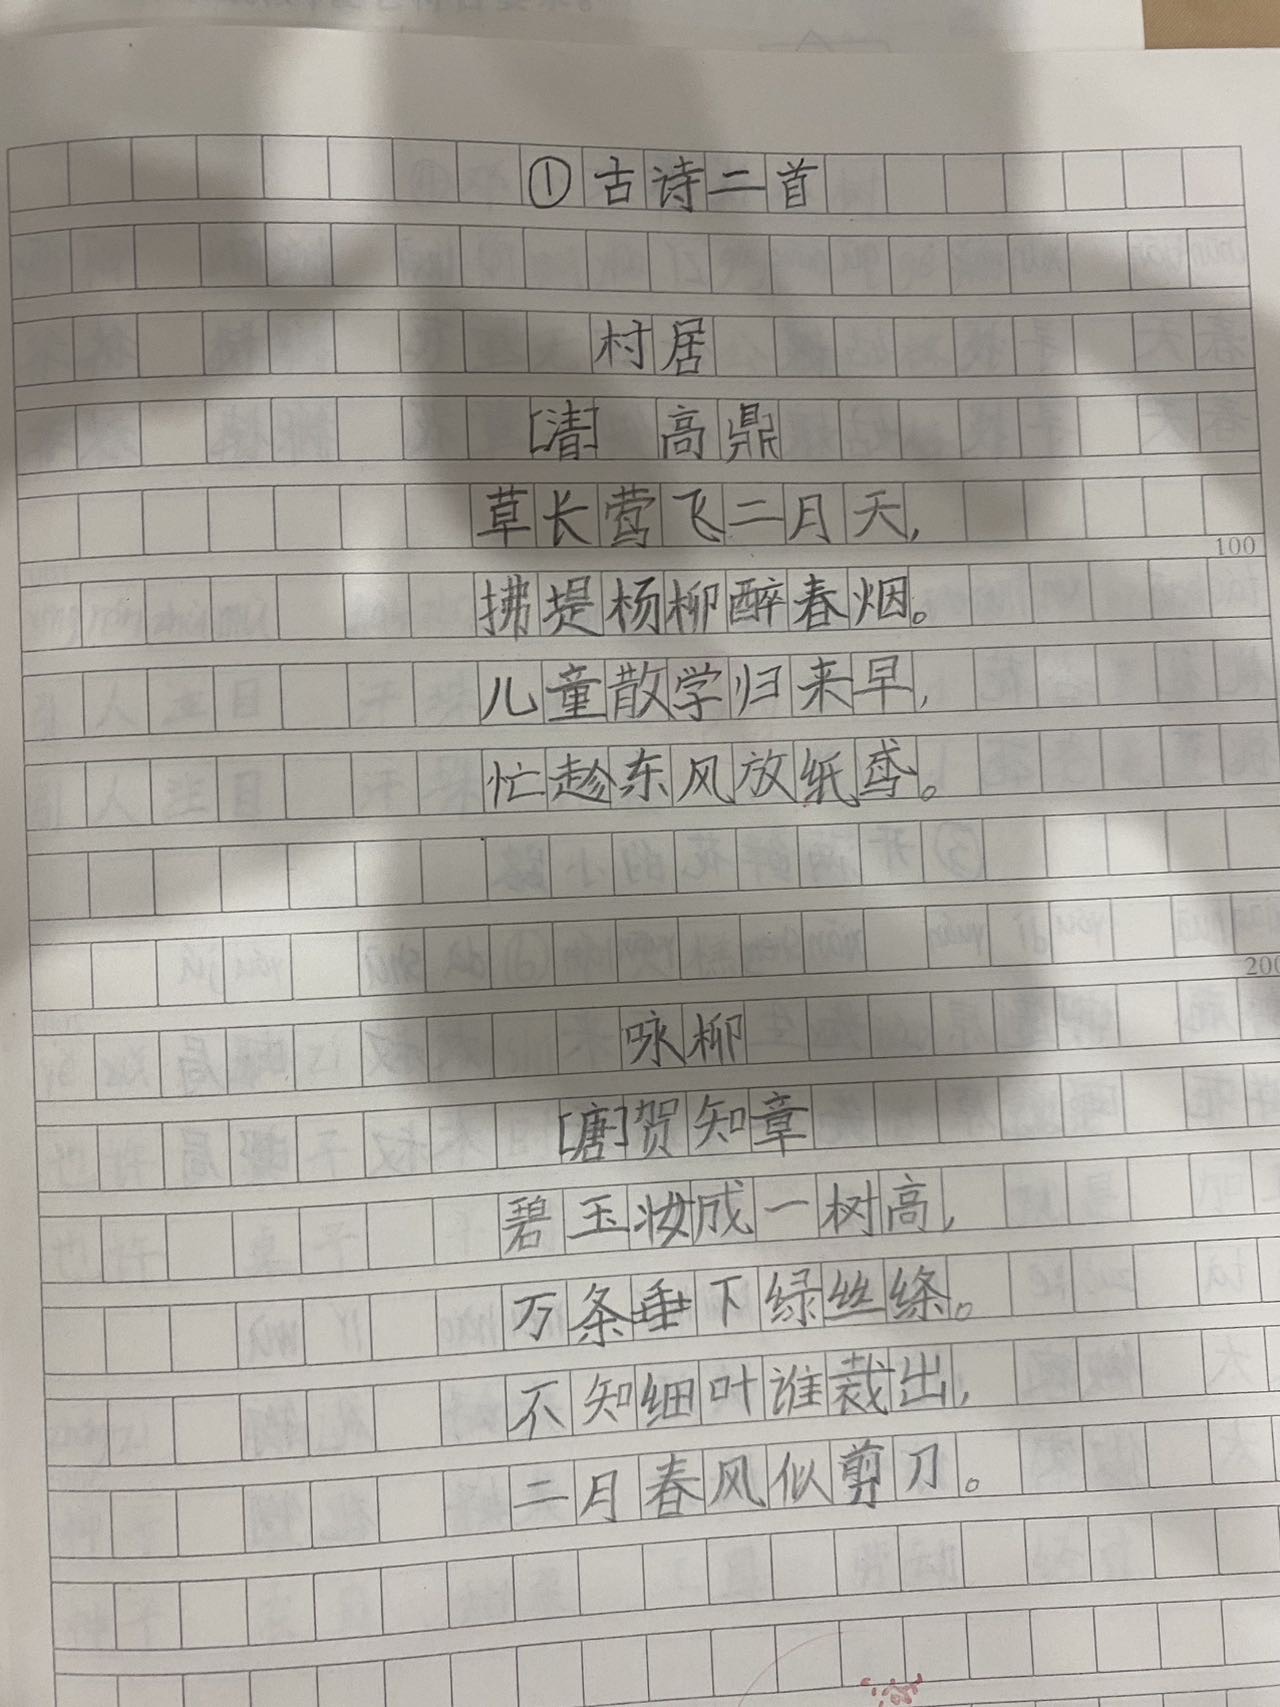 ①古诗二首
村居
[清] 高鼎
草长莺飞二月天,
100
拂堤杨柳醉春烟。
儿童散学归来早,
忙趁东风放纸鸢。
200
咏柳
[唐]贺知章
碧玉妆成一树高,
万条垂下绿丝绦。
不知细叶谁裁出,
二月春风似剪刀。